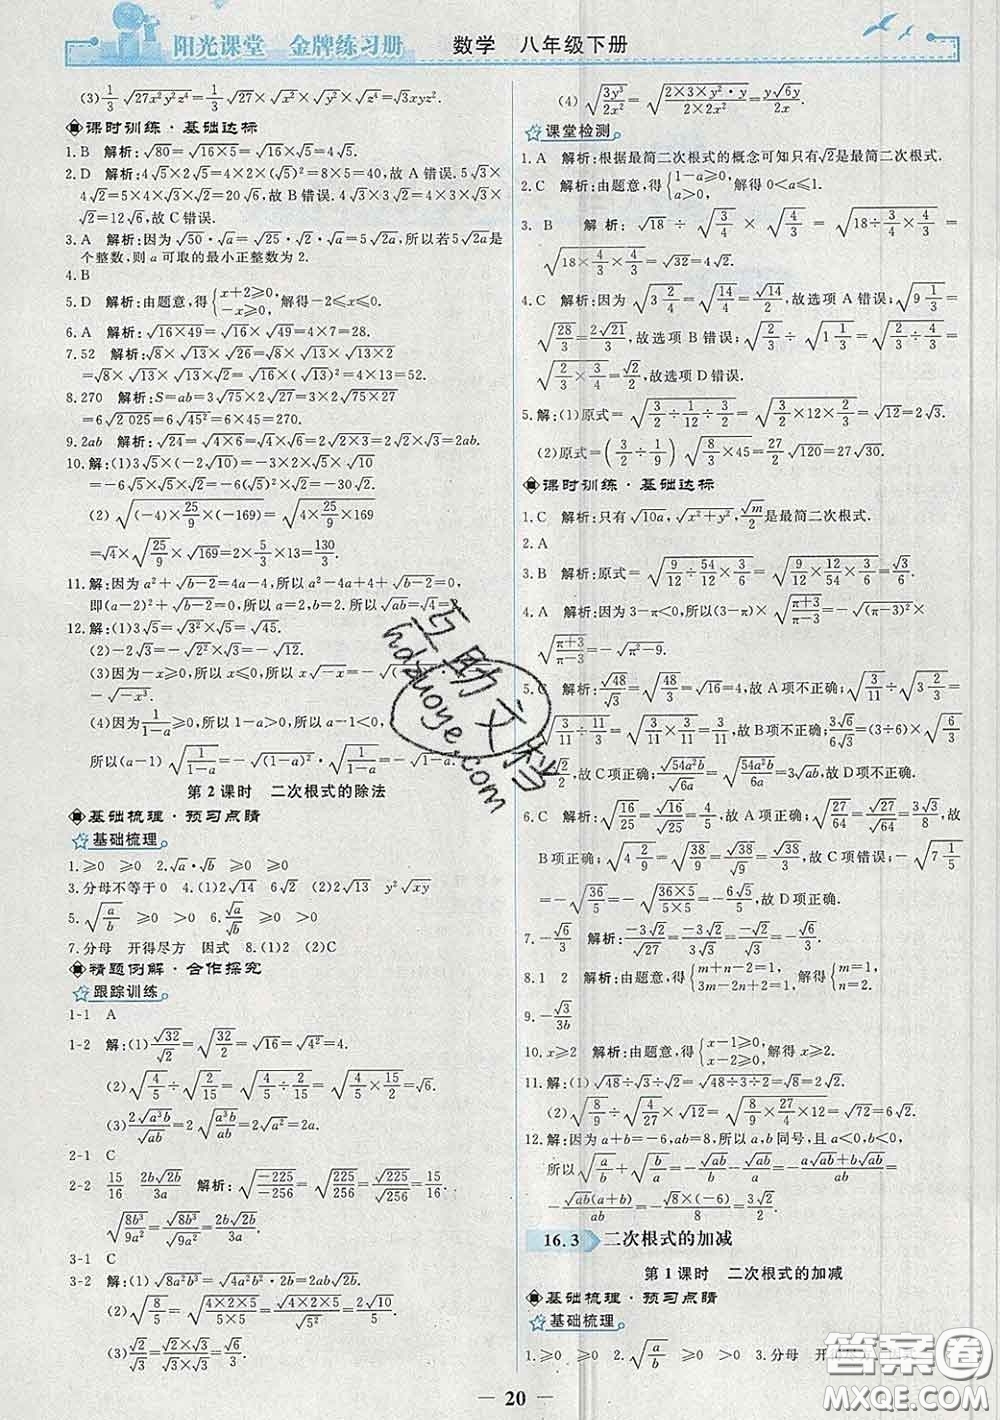 阳光课堂 金牌练习册 数学 八年级下册
(3)1/3√27x²y²z⁴=1/3√27×√x²×√y²×√z⁴=√3xyz².
课时训练·基础达标
1.B 解析:√80=√16×5=√16×√5=4√5.
2.D 解析:4√5×2√5=4×2×(√5)²=8×5=40,故A错误.5√3×
4√2=5×4×√3×2=20√6,故B错误.4√3×3√2=4×3×√3×
√2=12√6,故C错误.
3.A 解析:因为√50·√a=√25·√2·√a=5√2a,所以若5√2a是
个整数,则a可取的最小正整数为2.
4.B
5.D 解析:由题意,得{x+2≥0, -x≥0, 解得-2≤x≤0.
6.A 解析:√16×49=√16×√49=4×7=28.
7.52 解析:√8×√13×√26=√8×√13×√13×2
=√8×√13×√13×√2=√16×(√13)²=4×13=52.
8.270 解析:S=ab=3√75×2√27=3×2√75×27
=6√2 025=6√45²=6×45=270.
9.2ab 解析:√24=√4×6=√4×√6=2√2×3=2√2×√3=2ab.
10.解:(1)3√5×(-2√10)=-3×2×√5×√10
=-6√5×√5×√2=-6×(√5)²×√2=-30√2.
(2)√(-4)×25/9×(-169)=√4×25/9×169
=√4×√25/9×√169=2×5/3×13=130/3.
11.解:因为a²+√b-2=4a-4,所以a²-4a+4+√b-2=0,
即(a-2)²+√b-2=0,所以a=2,b=2.所以√ab=√4=2.
12.解:(1)3√5=√3²×√5=√45.
(2)-2√3=-√2²×√3=-√12.
(3)因为-x≥0,所以x≤0,所以x√-x=-√
-√-x³.
(4)因为1/(1-a)≥0,所以1-a>0,所以a-1<0,
所以(a-1)√1/(1-a)=-√(1-a)²·√1/(1-a)=-√1-a.
第2课时 二次根式的除法
基础梳理·预习点睛
基础梳理
1.≥0 ≥0 2.√a·√b ≥0 ≥0
3.分母不等于0 4.(1)2√14 6√2 (2)2√14 y²√xy
5.√a/b ≥0 >0 6.√a/√b ≥0 >0
7.分母 开得尽方 因式 8.(1)2 (2)C
精题例解·合作探究
跟踪训练
1-1 A
1-2 解:(1)√32/√2=√32/2=√16=√4²=4.
(2)√4/5÷√2/15=√4/5÷2/15=√4/5×15/2=√6.
(3)2√a³b/√ab=2√a³b/ab=2√a²=2a.
2-1 C
2-2 15/16 2b√2b/3a 解析:√-225/-256=√225/256=√225/√256=15/16.
√8b³/9a²=√8b³/√9a²=2b√2b/3a.
3-1 C
3-2 解:(1)√8a²b³=√4a²b²·2b=2ab√2b.
(2)√8/5=√4×2×5/5×5=√4×2×5/√5×5=2√10/5.
(3)√2/√3=√2×√3/√3×√3=√6/3.
(4)√3y³/2x²=√(2×3×y²·y)/(2×2x²)=y√6y/2x.
课堂检测
1.A 解析:根据最简二次根式的概念可知只有√2是最简二次根式.
2.C 解析:由题意,得{1-a≥0, a>0, 解得0<a≤1.
3.B 解析:√18÷√3/4×√4/3=√18÷3/4×4/3=
√18×4/3×4/3=√32=4√2.
4.C 解析:因为√3 2/4=√14/4=√14/2,故选项A错误;√9 1/3=
√28/3=2√21/3,故选项B错误;√3/2÷√1 1/3=
√3/2×3/4=√2/2,故选项D错误.
5.解:(1)原式=√3/2÷1/12÷3/2=√3/2×12×2/3=√12=2√3.
(2)原式=(3/2÷1/9)√8/3×45=27/2√120=27√30.
课时训练·基础达标
1.C 解析:只有√10a,√x²+y²,√m/2是最简二次根式.
2.A
3.B 解析:原式=√9/12÷12/54×3/6=√9/12×54/12×3/6=√3/6.
4.A 解析:因为3-π<0,所以(3-π)×√(π+3)/(π-3)=-√(π-3)²×
√(π+3)/(π-3)=-√π²-9.
5.C 解析:√48/√3=√48/3=√16=4,故A项不正确;√3/11÷√3 2/3=
√3/11÷11/3=√3/11×3/11=3/11,故B项不正确;3√6/6√3=(3÷6)×√6/3=
√2/2,故C项正确;√54a²b/√6a=√54a²b/6a=3√ab,故D项不正确.
6.C 解析:√16/25=√16/√25=4/5,故A项正确;√27/64=√27/√64=3√3/8,故
B项正确;√4 2/9=√38/9=√38/√9=√38/3,故C项错误;-√7 1/5
=-√36/5=-√36×5/5×5=-6√5/5,故D项正确.
7.-√6/3 解析:-3√2/√27=-3√2/3√3=-√2/√3=-√6/3.
8.1 2 解析:由题意,得{m+n-2=1, 3m-2n+2=1, 解得{m=1, n=2.
9.-√3/3b
10.x≥2 解析:由题意,得{x-1≥0, x-2≥0, 解得x≥2.
11.解:(1)√48÷√3÷√2=√48÷3÷2=√8=2√2.
(2)√8/9÷√4/27×√12=√8/9×27/4×12=√72=6√2.
12.解:因为a+b=-6,ab=8,所以a,b同号,且a<0,b<0,
所以√a/b+√b/a=
-√ab(a+b)/ab=-√8×(-6)/8=3√2/2.
16.3 二次根式的加减
第1课时 二次根式的加减
基础梳理·预习点睛
基础梳理
1.≥0 ≥0 2.√a/b ≥0 >0 3.分母 开
20
互助文档
hdzuoye.com
答案圈
MXQE.COM